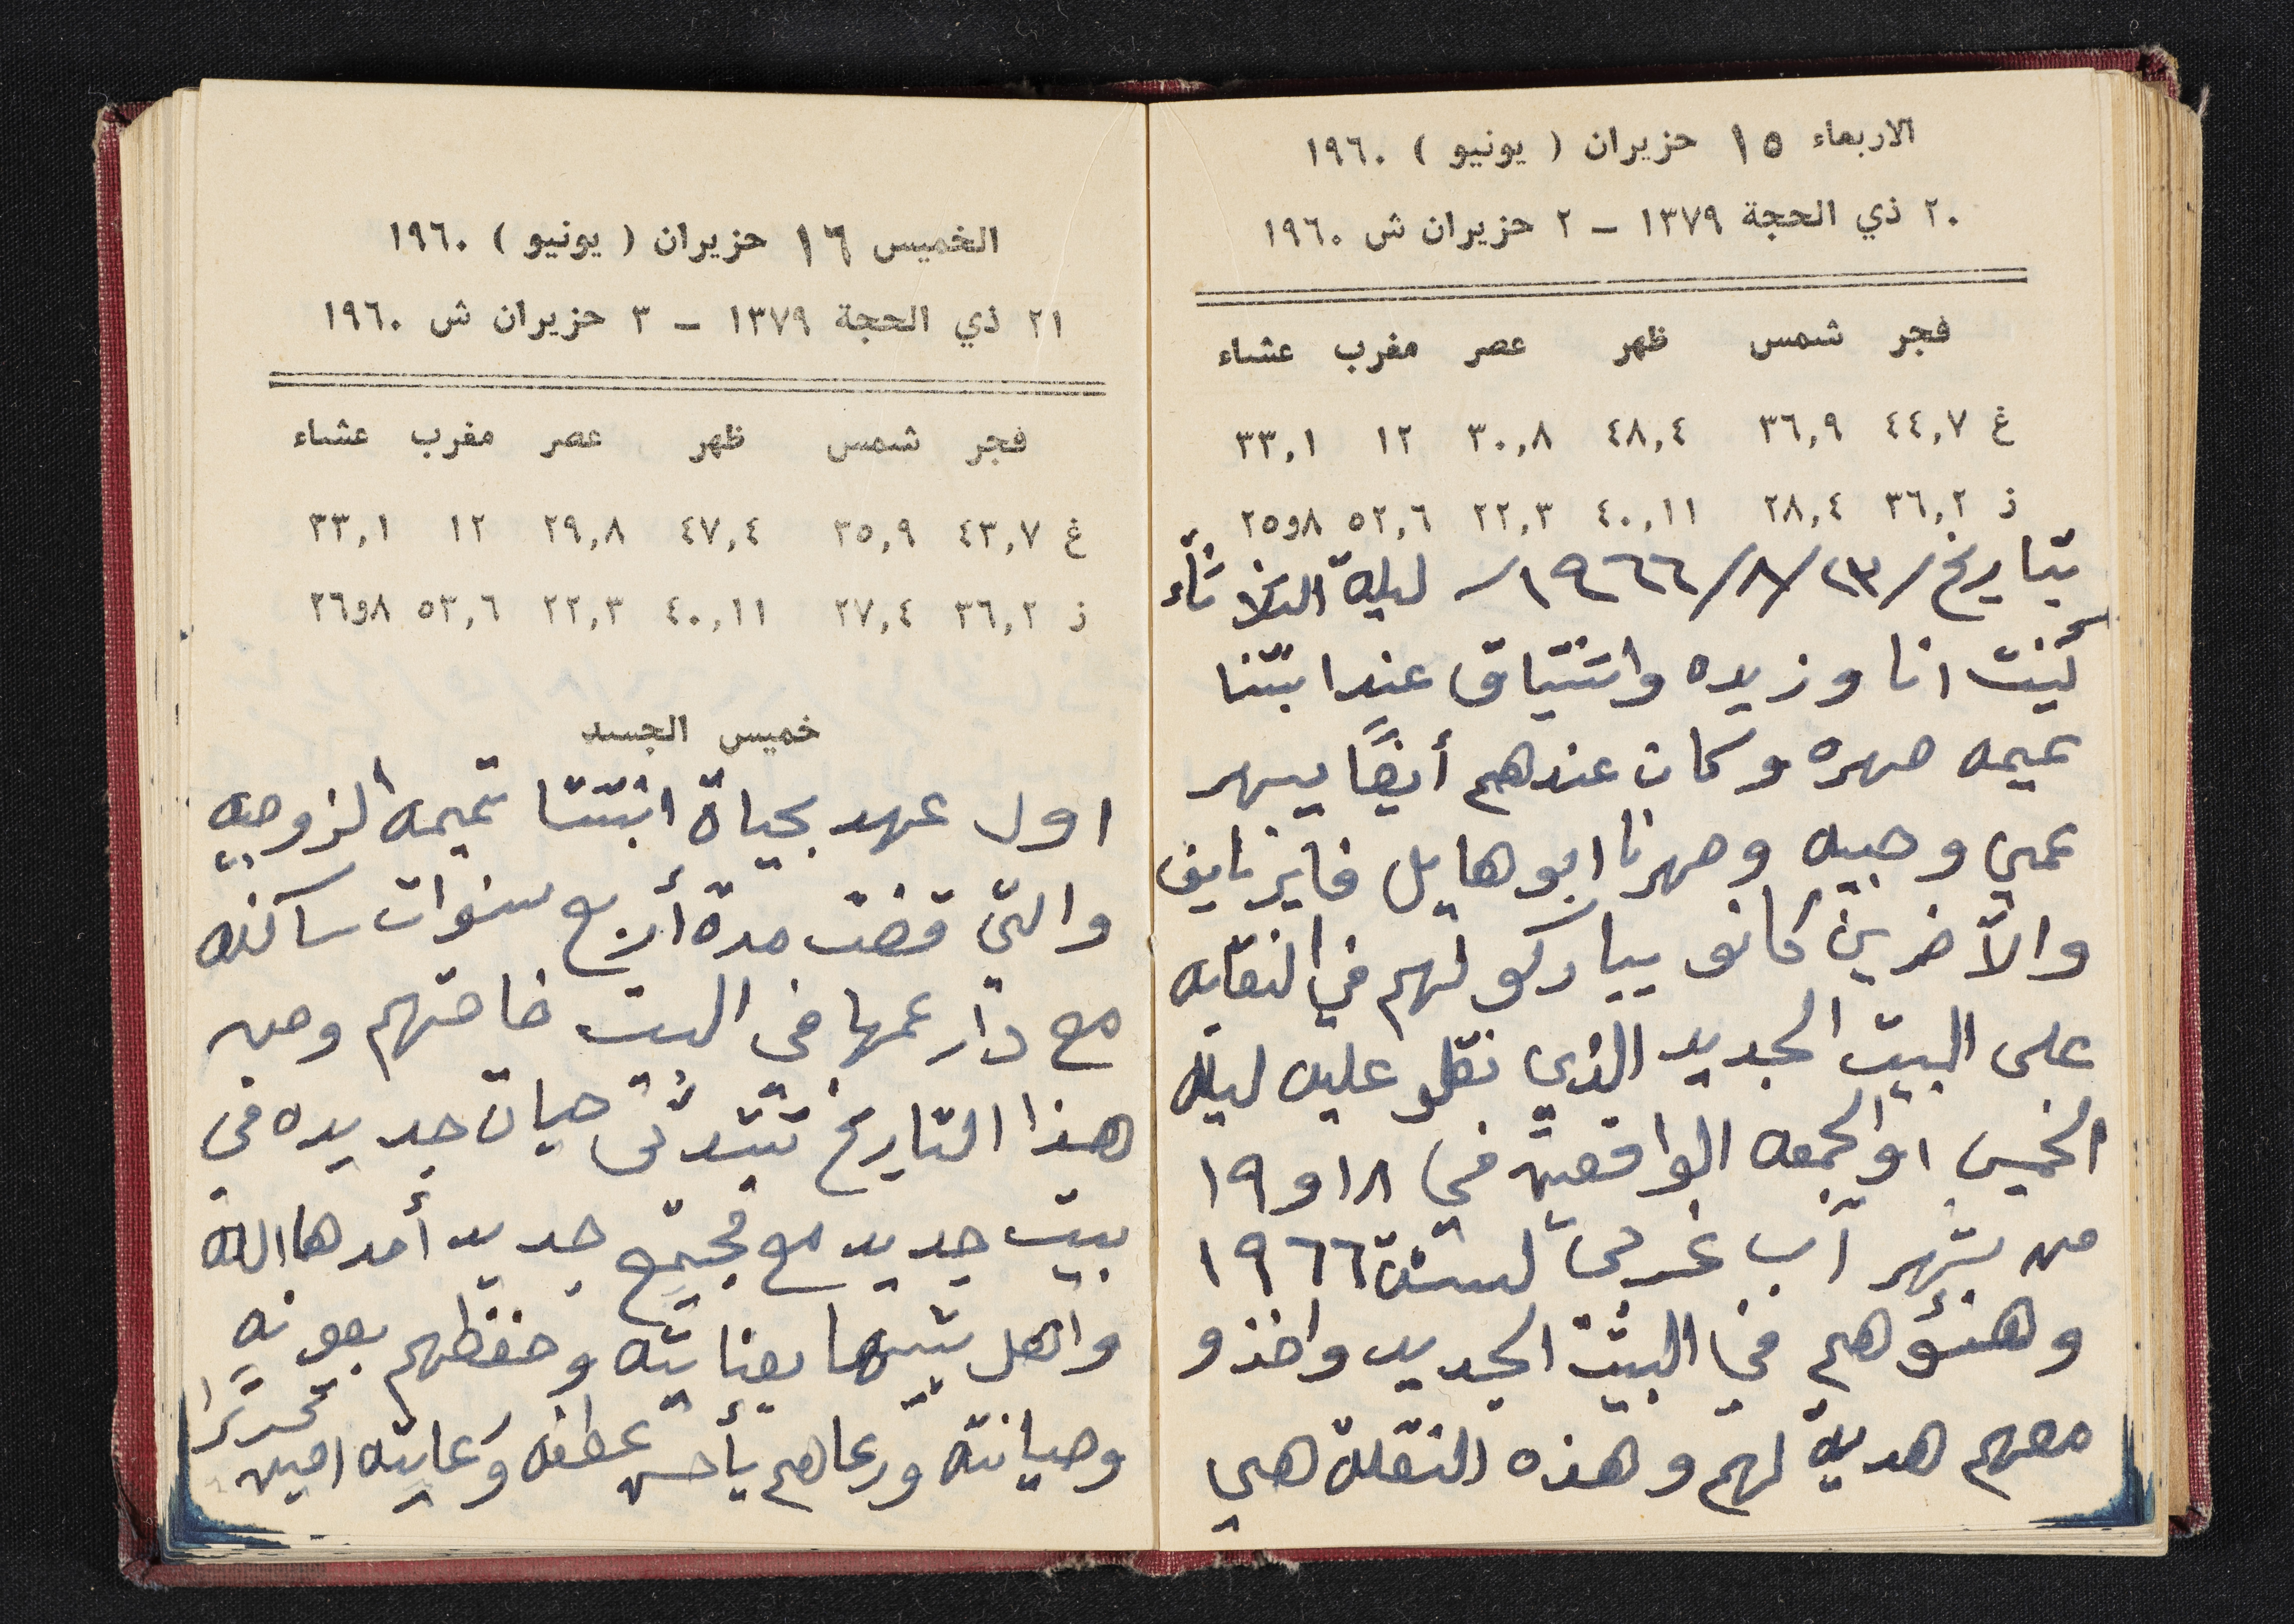 الاربعاء ١٥ حزيران ( يونيو ) ١٩٦٠
٢٠ ذي الحجة ١٣٧٩ – ٢ حزيران ش ١٩٦٠
فجر شمس ظهر عصر مغرب عشاء
غ ٤٤,٧ ٣٦,٩ ٤٨,٤ ٣٠,٨ ١٢ ٣٣,١
ز ٣٦,٢ ٢٨,٤ ٤٠,١١ ٢٢,٣ ٥٢,٦ ٨و٢٥
بتاريخ /٢٣/٨/١٩٦٦/ ليلة الثلاثاء
كنت انا وزيده واشتياق عند ابنتنا
تميمه سهره وكان عندهم أيضًا يسهر
عمي وجيه وصهرنا ابو هايل فايز نايف
والآخرين كانو يباركو لهم في النقله
على البيت الجديد الذي نقلو عليه ليلة
الخميس او الجمعه الواقعين في ١٨ و ١٩
من شهر آب غربي لسنة ١٩٦٦
وهنؤهم في البيت الجديد واخذو
معهم هدية لهم وهذه النقلة هي
الخميس ١٦ حزيران ( يونيو ) ١٩٦٠
٢١ ذي الحجة ١٣٧٩ – ٣ حزيران ش ١٩٦٠
فجر شمس ظهر عصر مغرب عشاء
غ ٤٣,٧ ٣٥,٩ ٤٧,٤ ٢٩,٨ ١٢ ٣٣,١
ز ٣٦,٢ ٢٧,٤ ٤٠,١١ ٢٢,٣ ٥٣,٦ ٨و٢٦
خميس الجسد
اول عهد بحياة ابنتنا تميمه الزوجيه
والتي قضت مدة أربع سنوات ساكنه
مع دار عمها في البيت خاصتهم ومن
هذا التاريخ تبتدئ حيات جديده في
بيت جديد مع مجتمع جديد أمدها الله
واهل بيتها بعنايته وحفظهم بعونه
وصيانته ورعاهم بأحسن عطفه ورعايته امين
تحريرًا